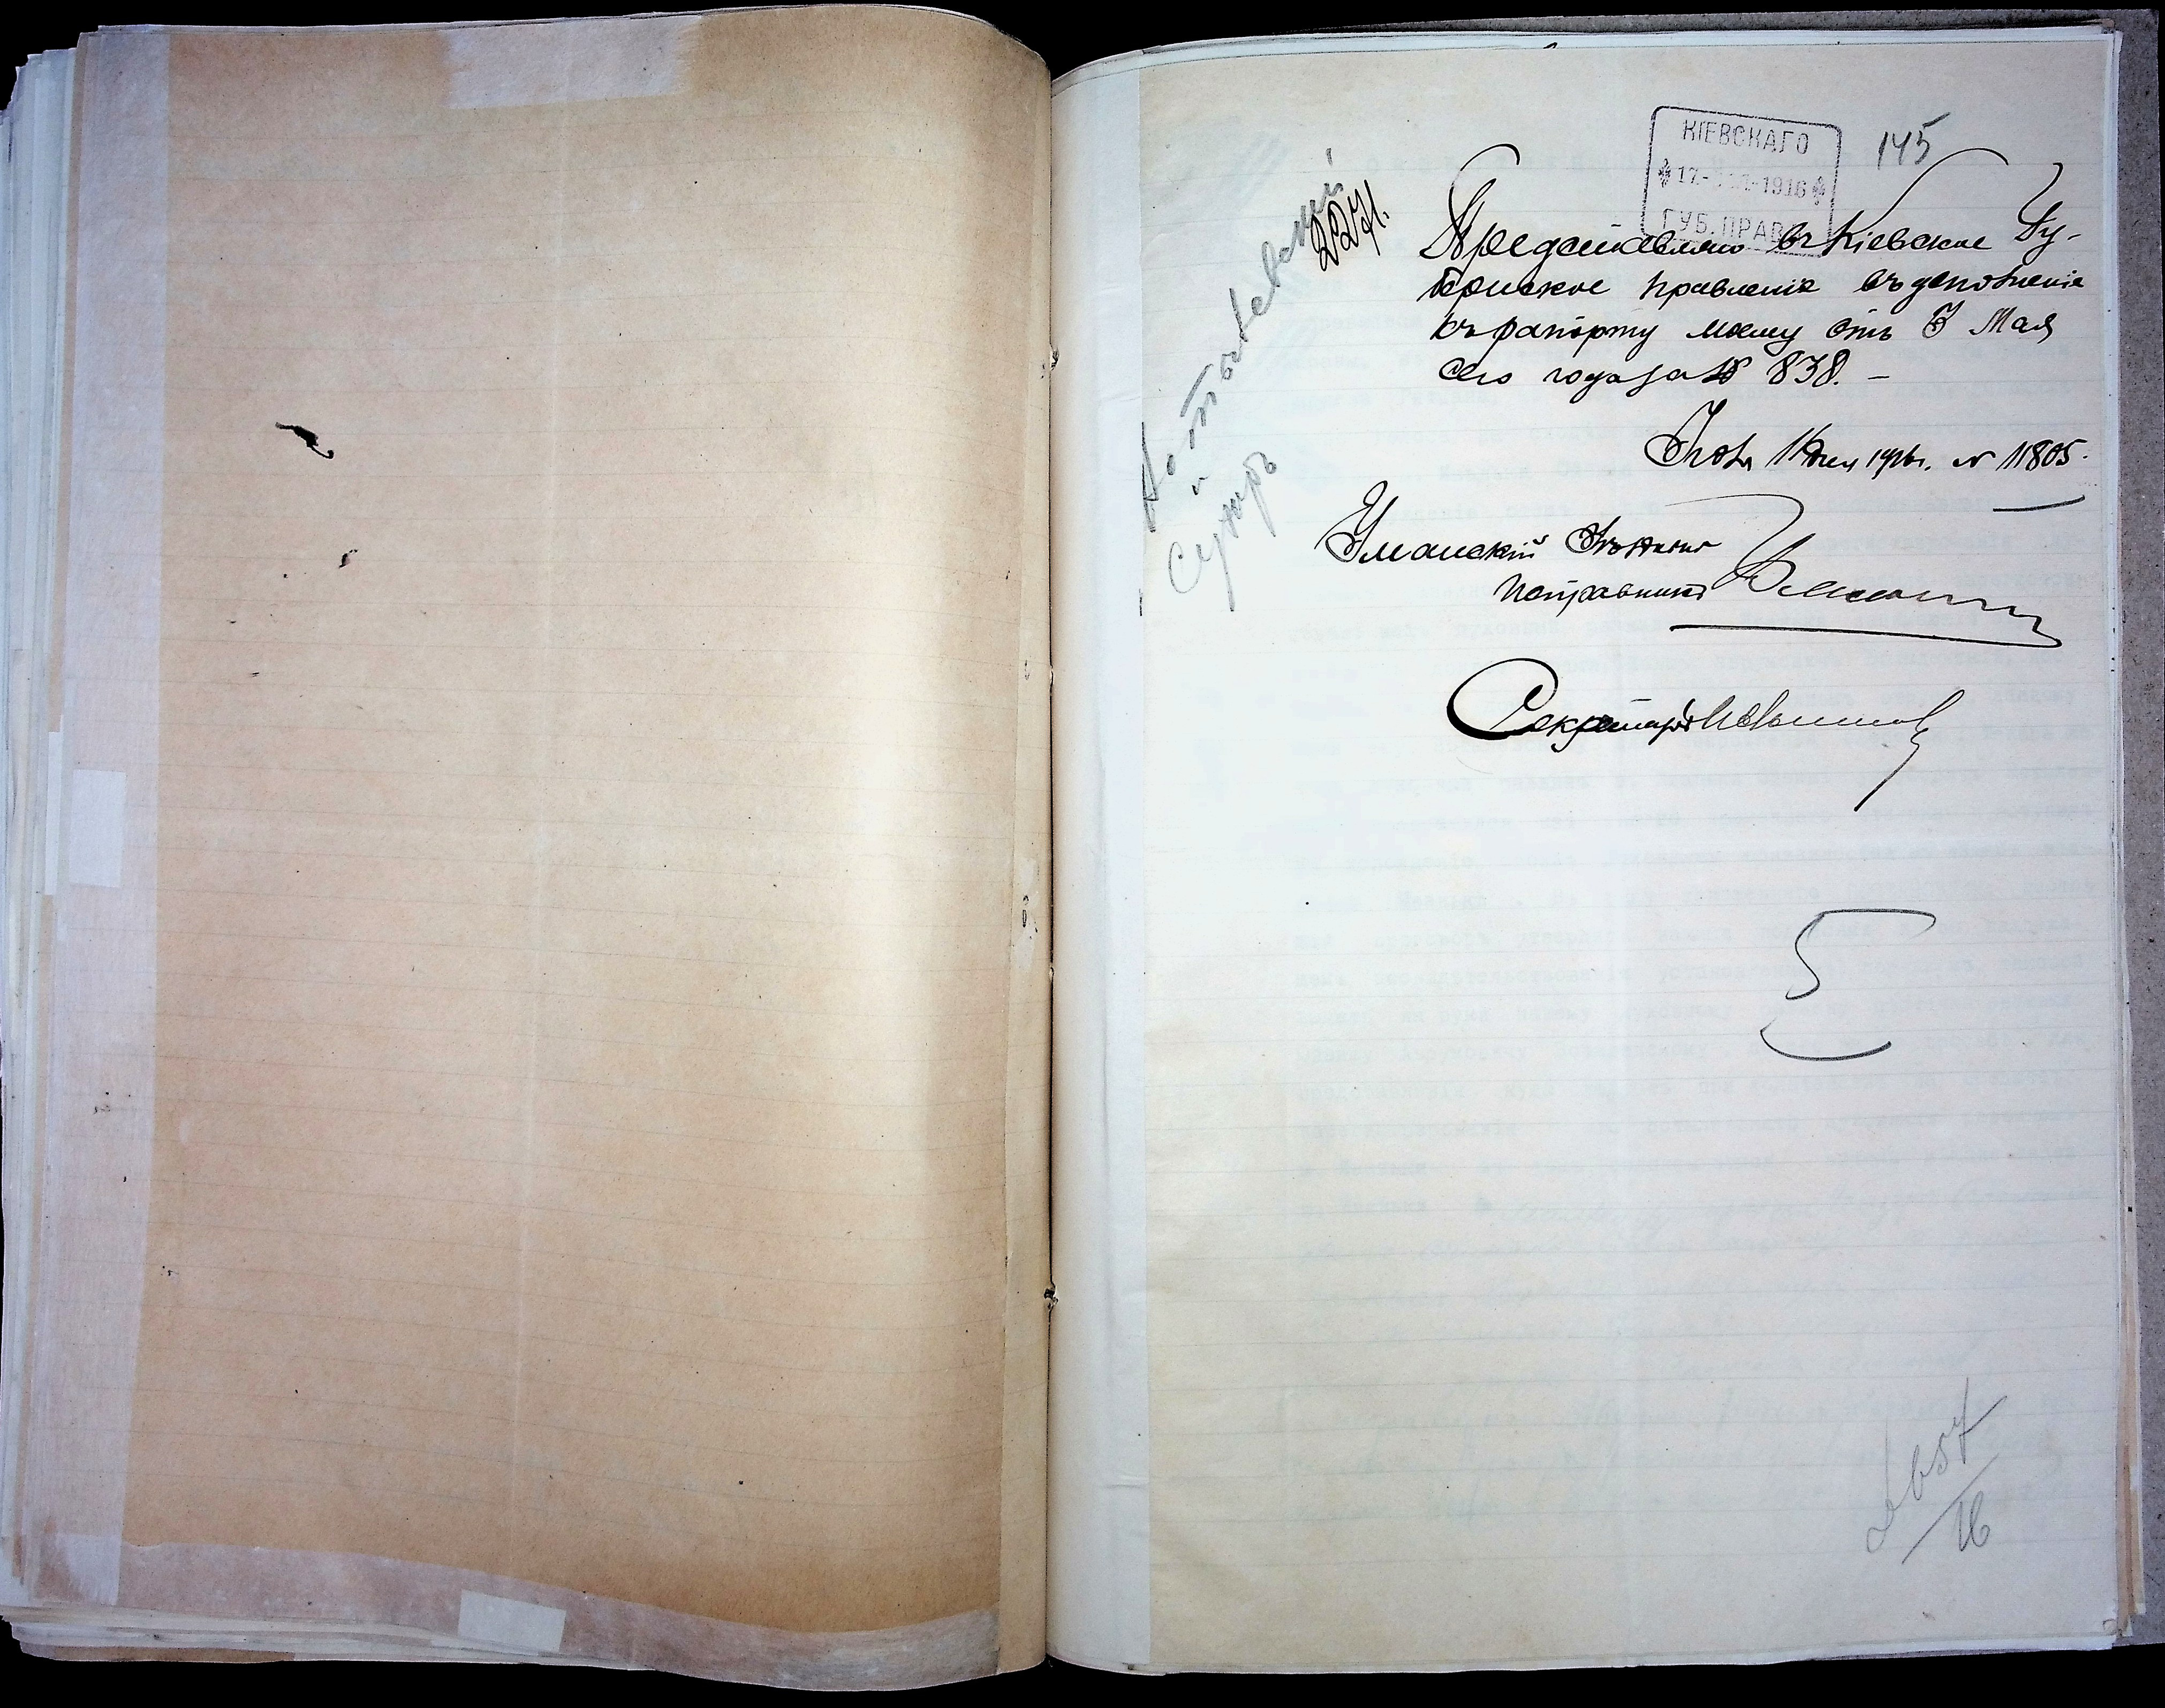 КІЕВСКАГО
17- -1916
ГУБ. ПРАВ
145
2271.
и
Представляю въ Кіевское Гу-
бернское правленіе въ дополненіе
къ рапорту моему отъ 3 Мая
сего года за № 838. –
1916 г. № 11805.
Уманскій Уѣздный
Исправникъ
Секретарь
16